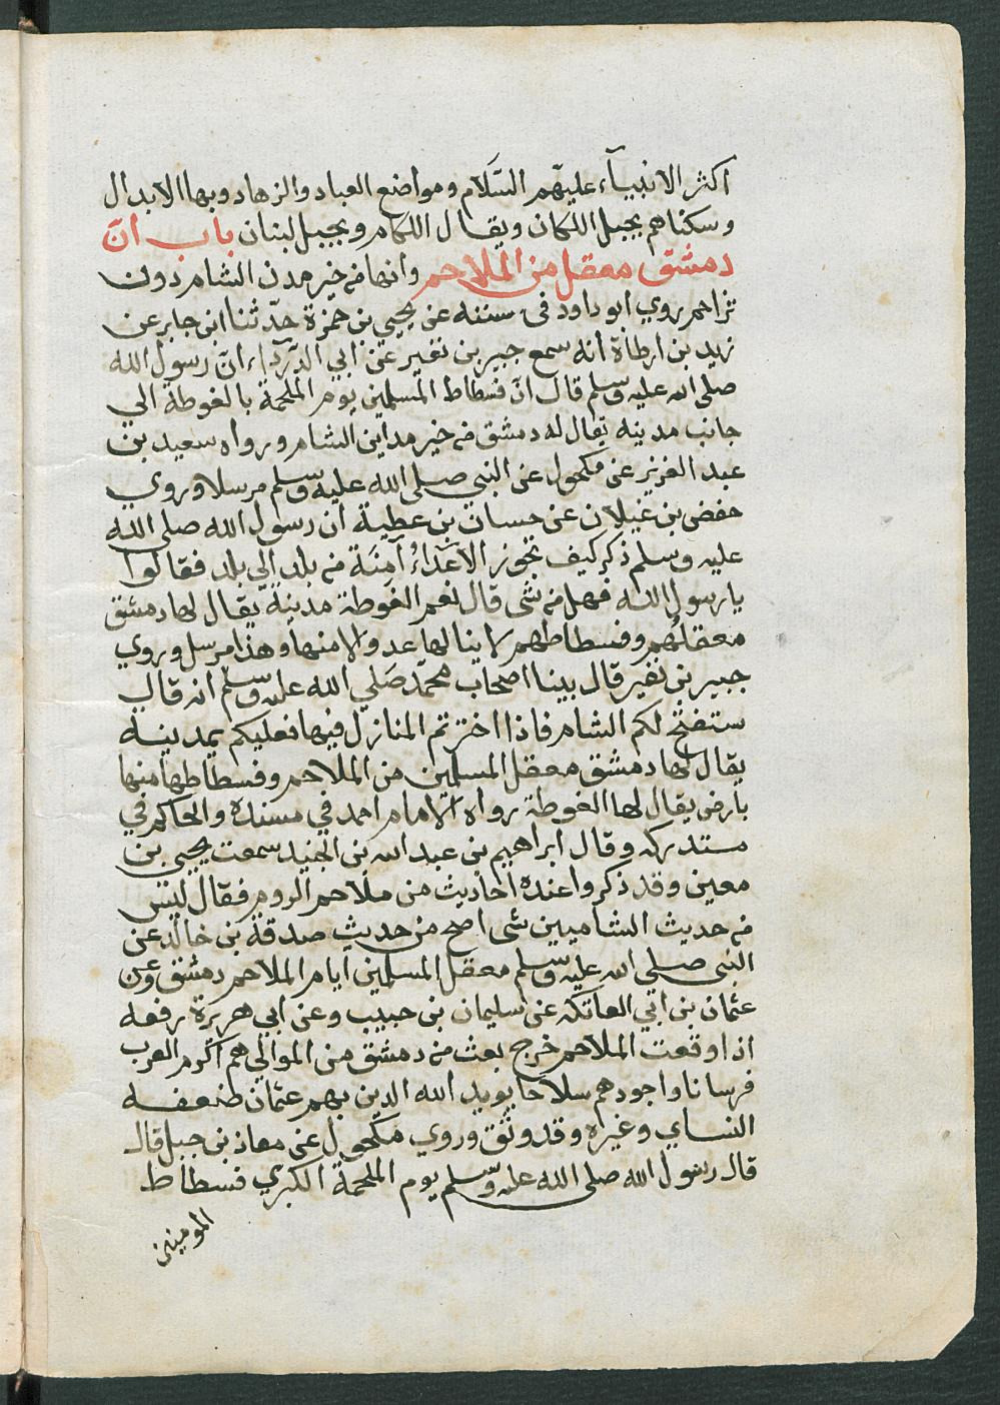 اكثر الانبيآء عليهم السَّلام ومواضع العباد والزهاد وبها الابدال
وسكناهم بجبل اللكان ويقال اللكام وبجبل لبنان باب انّ
دمشق معقل من الملاحم وانها من خير مدن الشام دون
تزاحم روي ابو داود في سننه عن يحيي بن حمزة حدّثنا ابن جابر عن
زيد بن ارطاة انه سمع جبير بن نفير عن ابي الدّرداء انّ رسول الله
صلى الله عليه وسلم قال انّ فسطاط المسلمين يوم الملحمة بالغوطة الي
جانب مدينه يقال له دمشق من خير مداين الشام ورواه سعيد بن
عبد العزيز عن مكحول عن النبي صلى الله عليه وسلم مرسلا وروي
حفص بن غيلان عن حسان بن عطية ان رسول الله صلى الله
عليه وسلم ذكر كيف تجوز الاعداءُ آمنَة من بلد الي بلد فقالوا
يا رسول الله فهل من شى قال نعم الغوطة مدينة يقال لها دمشق
معقلهُم وفسطاطهم لا ينالها عدو الا منها وهذا مرسل وروي
جبير بن نفير قال بينا اصحاب محمّد صَلي الله عليه وسلم انه قال
ستفتح لكم الشام فاذا اخترتم المنازل فيها فعليكم بمدينة
يقال لها دمشق معقل المسلمين من الملاحم وفسطاطها منها
بارض يقال لها الغوطة رواه الامام احمد في مسنده والحاكم في
مستدركه وقال ابراهيم بن عبد الله بن الجنيد سمعت يحيى بن
معين وقد ذكروا عنده احاديث من ملاحم الروم فقال ليس
من حديث الشاميين شى اصح من حديث صدقة بن خالد عن
النبى صلى الله عليه وسلم معقل المسلمين ايام الملاحم دمشق وعن
عثمان بن ابي العاتكه عن سليمان بن حبيب وعن ابي هريرة رفعه
اذا وقعت الملاحم خرج بعث من دمشق من الموالي هم اكرم العرب
فرسانا واجودهم سلاحا يويد الله الدين بهم عثمان ضعفه
النساي وغيره وقد وثق وروي مكحول عن معاذ بن جبل قال
قال رسول الله صلى الله عليه وسلم يوم الملحمة الكبري فسطاط
المومنين